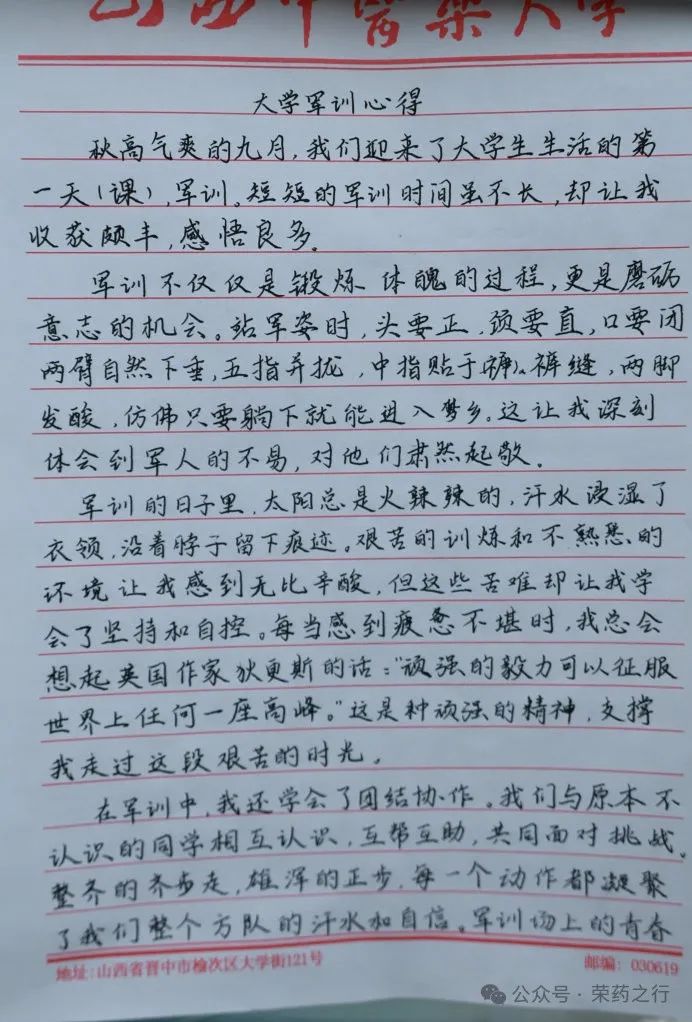 山西中医药大学
大学军训心得
秋高气爽的九月，我们迎来了大学生生活的第
一天（课），军训。短短的军训时间虽不长，却让我
收获颇丰，感悟良多。
军训不仅仅是锻炼体魄的过程，更是磨砺
意志的机会。站军姿时，头要正，颈要直，口要闭
两臂自然下垂，五指并拢，中指贴于裤缝，两脚
发酸，仿佛只要躺下就能进入梦乡。这让我深刻
体会到军人的不易，对他们肃然起敬。
军训的日子里，太阳总是火辣辣的，汗水浸湿了
衣领，沿着脖子留下痕迹。艰苦的训炼和不熟悉的
环境让我感到无比辛酸，但这些苦难却让我学
会了坚持和自控。每当感到疲惫不堪时，我总会
想起英国作家狄更斯的话：“顽强的毅力可以征服
世界上任何一座高峰。”这是种顽强的精神，支撑
我走过这段艰苦的时光。
在军训中，我还学会了团结协作。我们与原本不
认识的同学相互认识，互帮互助，共同面对挑战。
整齐的齐步走，雄浑的正步，每一个动作都凝聚
了我们整个方队的汗水和自信。军训场上的青春
地址：山西省晋中市榆次区大学街121号 邮编：030619
公众号·荣药之行